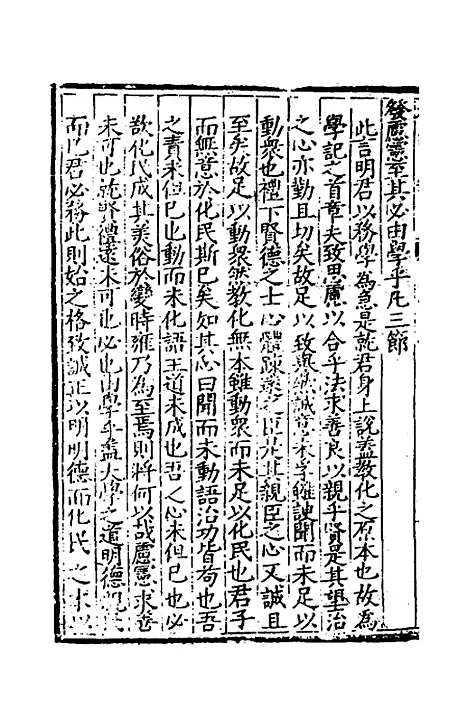 發慮憲至其必由學乎凡三節
此言明君以務學為急是就君身上說盖教化之原本也故為
學記之首章夫致思慮以合乎法求善良以親乎賢是其望治
之心亦勤且切矣故足以致譽然誠意未孚雖謏聞而未足以
動衆也禮下賢德之士心體踈遠之臣是其親臣之心又誠且
至矣故足以動衆然教化無本雖動衆而未足以化民也君子
而無意於化民斯已矣知其心曰聞而未動語治功皆苟也吾
之責未但已也動而未化語王道未成也吾之心未但已也必
欲化民成其美俗於變時雍乃為至焉則將何以哉慮憲求善
未可也就賢體遠未可也必也由學乎盖大學之道明德
而已君必務此則始之格致誠正以明明德而化民之本以